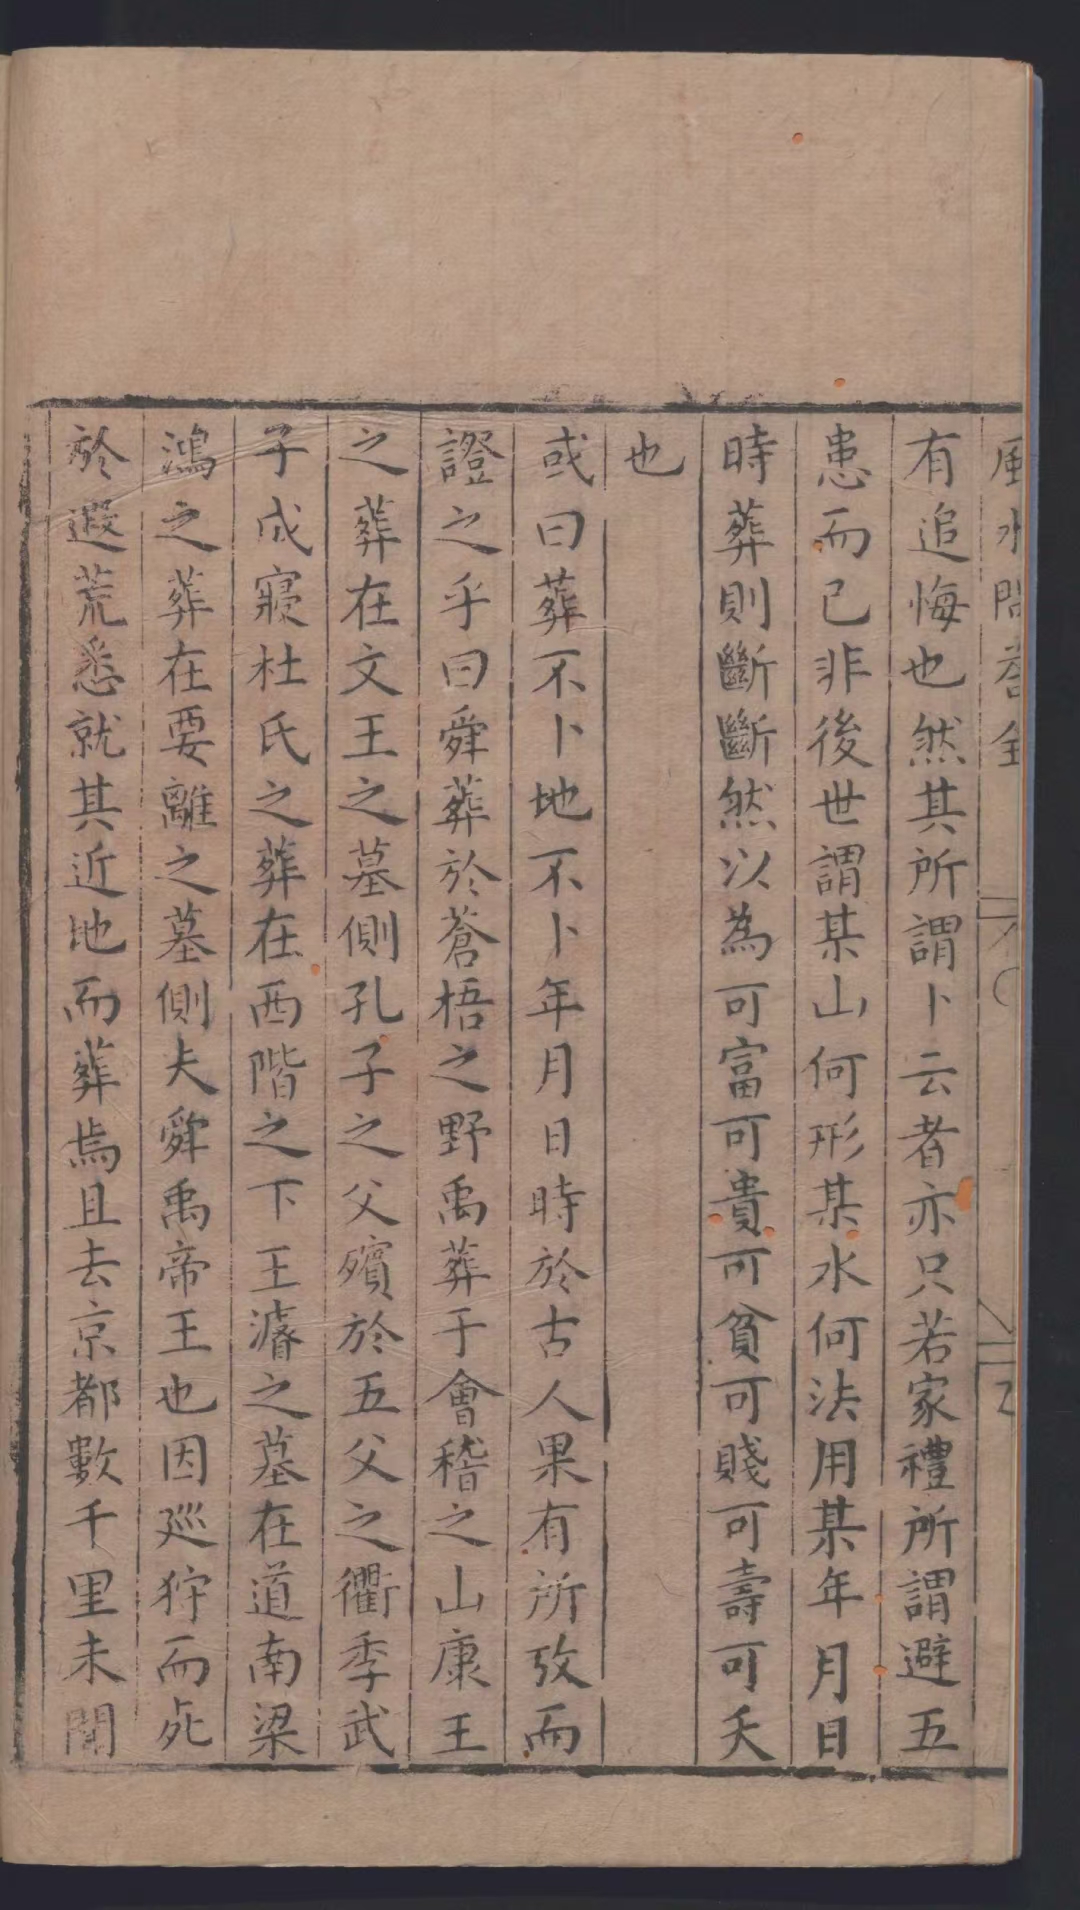 風水問荅全
有追悔也然其所謂卜云者亦只若家禮所謂避五
患而已非後世謂某山何形某水何法用某年月日
時葬則斷斷然以為可富可貴可貧可賤可壽可夭
也
或曰葬不卜地不卜年月日時於古人果有所攷而
證之乎曰舜葬於蒼梧之野禹葬于會稽之山康王
之葬在文王之墓側孔子之父殯於五父之衢季武
子成寢杜氏之葬在西階之下王濬之墓在道南梁
鴻之葬在要離之墓側夫舜禹帝王也因廵狩而死
於遐荒悉就其近地而葬焉且去京都數千里未聞